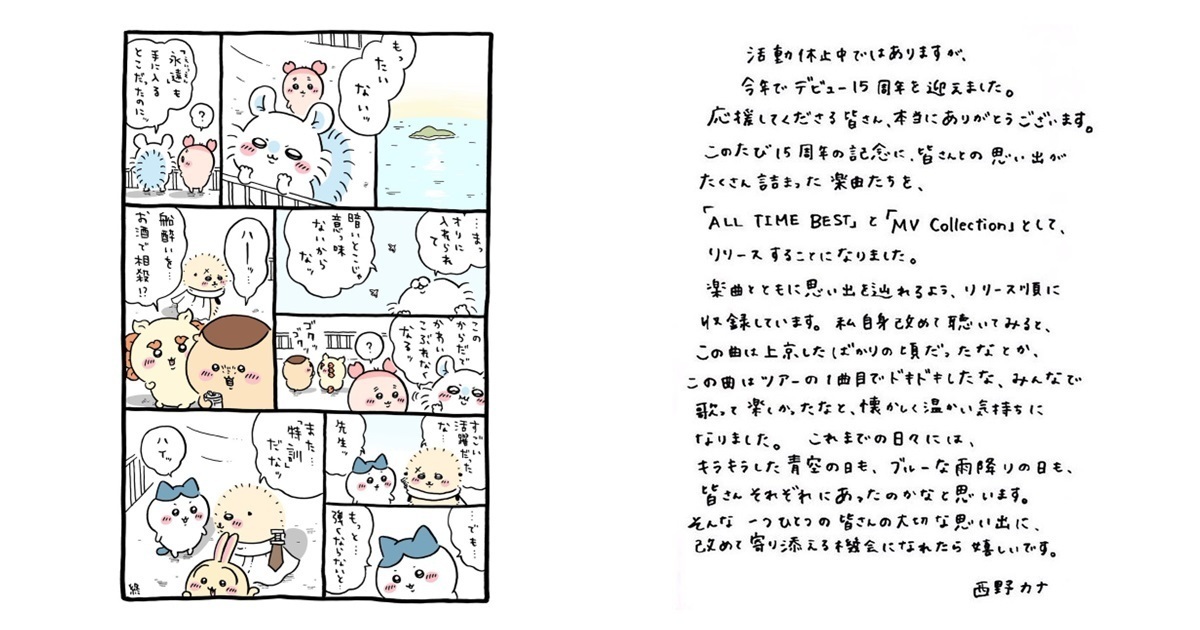 もっ
たい
ないッ
「永遠」も
えいえん
手に入る
とこだったのにッ
?
…まっ
オリに
入れられ
て
暗いとこじゃ
意っ味
ないから
なッ
この
からだで
かわい
こぶれなく
なるッ
?
ゴクッ
ゴクッ
ハーーッ…
船酔いを…
お酒で相殺!?
すごい
活躍だった
な…
先生ッ
…でも…
もっと…
強くならないと…
また…
「特訓」
だなッ
ハイッ
終
活動休止中ではありますが、
今年でデビュー15周年を迎えました。
応援してくださる皆さん、本当にありがとうございます。
このたび15周年の記念に、皆さんとの思い出が
たくさん詰まった楽曲たちを、
「ALL TIME BEST」と「MV Collection」として、
リリースすることになりました。
楽曲とともに思い出を辿れるよう、リリース順に
収録しています。私自身改めて聴いてみると、
この曲は上京したばかりの頃だったなとか、
この曲はツアーの1曲目でドキドキしたな、みんなで
歌って楽しかったなと、懐かしく温かい気持ちに
なりました。 これまでの日々には、
キラキラした青空の日も、ブルーな雨降りの日も、
皆さんそれぞれにあったのかなと思います。
そんな一つひとつの皆さんの大切な思い出に、
改めて寄り添える機会になれたら嬉しいです。
西野カナ